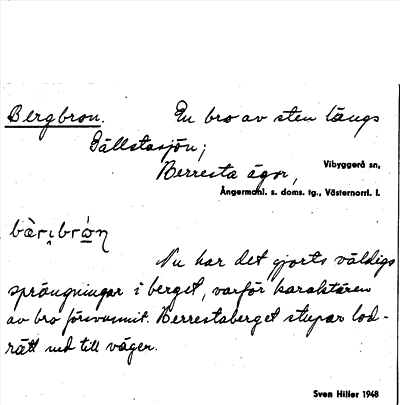 Bergbron. En bro av sten längs
Gällstasjön;
Berresta ägor,
Vibyggerå sn,
Ångermanl. s. doms. tg., Västernorrl. l.
bàr̥ibrón
Nu har det gjorts väldiga
sprängningar i berget, varför karaktären
av bro försvunnit. Berrestaberget stupar lod-
rätt ned till vägen.
Sven Hiller 1948